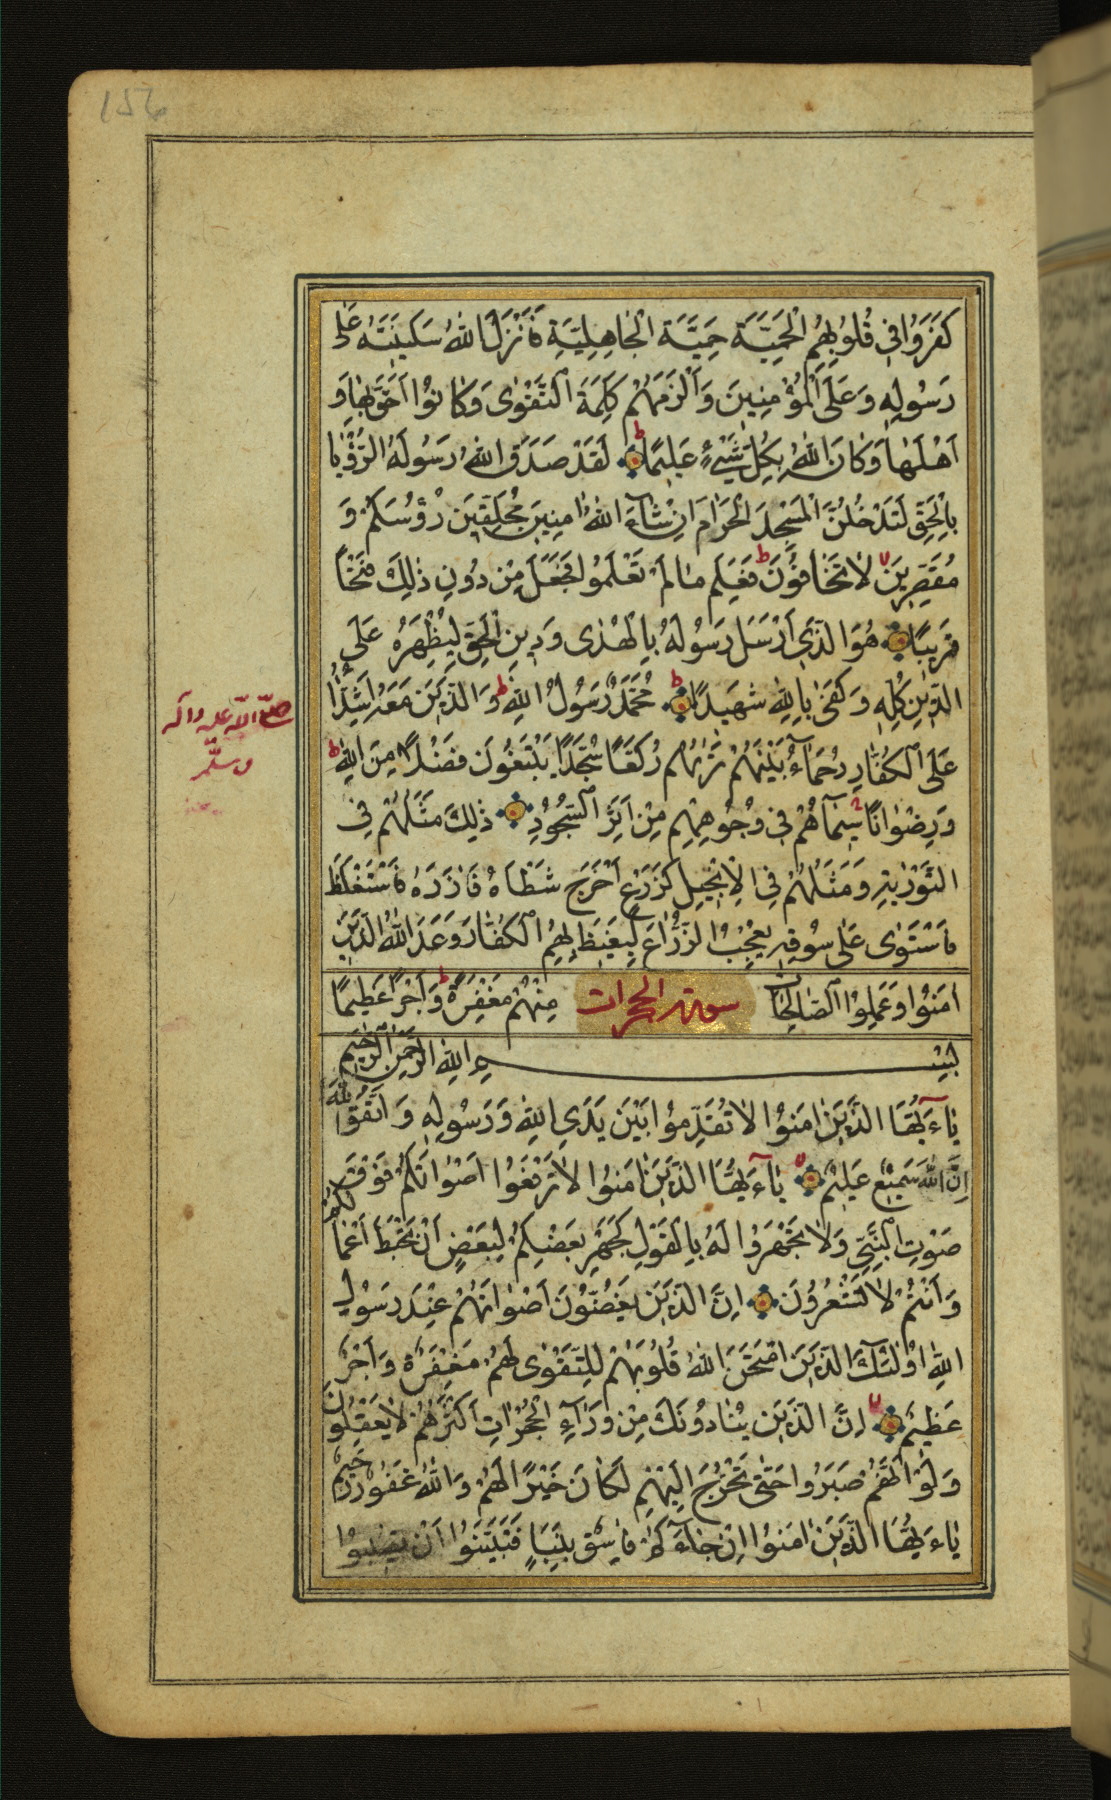 156
كَفَرُوا فِي قُلُوبِهِمُ الْحَمِيَّةَ حَمِيَّةَ الْجَاهِلِيَّةِ فَأَنْزَلَ اللهُ سَكِينَتَهُ عَلَى
رَسُولِهِ وَعَلَى الْمُؤْمِنِينَ وَأَلْزَمَهُمْ كَلِمَةَ التَّقْوٰى وَكَانُوا أَحَقَّ بِهَا وَ
أَهْلَهَا وَكَانَ اللهُ بِكُلِّ شَيْءٍ عَلِيمًا ط لَقَدْ صَدَقَ اللهُ رَسُولَهُ الرُّؤْيَا
بِالْحَقِّ لَتَدْخُلُنَّ الْمَسْجِدَ الْحَرَامَ اِنْ شَآءَ اللهُ اٰمِنِينَ مُحَلِّقِينَ رُؤُسَكُمْ وَ
مُقَصِّرِينَ لَا تَخَافُونَ ط فَعَلِمَ مَا لَمْ تَعْلَمُوا فَجَعَلَ مِنْ دُونِ ذٰلِكَ فَتْحًا
قَرِيبًا هُوَ الَّذِي أَرْسَلَ رَسُولَهُ بِالْهُدٰى وَدِينِ الْحَقِّ لِيُظْهِرَهُ عَلَى
الدِّينِ كُلِّهِ وَكَفٰى بِاللهِ شَهِيدًا ط مُحَمَّدٌ رَسُولُ اللهِ ط وَالَّذِينَ مَعَهُ أَشِدَّاءُ
صلى الله عليه وآله
وسلم
عَلَى الْكُفَّارِ رُحَمَآءُ بَيْنَهُمْ تَرٰيهُمْ رُكَّعًا سُجَّدًا يَبْتَغُونَ فَضْلًا مِنَ اللهِ ط
وَرِضْوَانًا سِيمَاهُمْ فِي وُجُوهِهِمْ مِنْ أَثَرِ السُّجُودِ ذٰلِكَ مَثَلُهُمْ فِي
التَّوْرٰيةِ وَمَثَلُهُمْ فِي الْإِنْجِيلِ كَزَرْعٍ أَخْرَجَ شَطْأَهُ فَآزَرَهُ فَاسْتَغْلَظَ
فَاسْتَوٰى عَلَى سُوقِهِ يُعْجِبُ الزُّرَّاعَ لِيَغِيظَ بِهِمُ الْكُفَّارَ وَعَدَ اللهُ الَّذِينَ
اٰمَنُوا وَعَمِلُوا الصَّالِحَاتِ سورة الحجرات مِنْهُمْ مَغْفِرَةً ط وَأَجْرًا عَظِيمًا
بِسْمِ اللهِ الرَّحْمٰنِ الرَّحِيمِ
يَآءَيُّهَا الَّذِينَ اٰمَنُوا لَا تُقَدِّمُوا بَيْنَ يَدَيِ اللهِ وَرَسُولِهِ وَاتَّقُوا اللهَ
اِنَّ اللهَ سَمِيعٌ عَلِيمٌ يَآءَيُّهَا الَّذِينَ اٰمَنُوا لَا تَرْفَعُوا اَصْوَاتَكُمْ فَوْقَ
صَوْتِ النَّبِيِّ وَلَا تَجْهَرُوا لَهُ بِالْقَوْلِ كَجَهْرِ بَعْضِكُمْ لِبَعْضٍ أَنْ تَحْبَطَ أَعْمَالُكُمْ
وَأَنْتُمْ لَا تَشْعُرُونَ اِنَّ الَّذِينَ يَغُضُّونَ أَصْوَاتَهُمْ عِنْدَ رَسُولِ
اللهِ اُولٰئِكَ الَّذِينَ امْتَحَنَ اللهُ قُلُوبَهُمْ لِلتَّقْوٰى لَهُمْ مَغْفِرَةٌ وَأَجْرٌ
عَظِيمٌ اِنَّ الَّذِينَ يُنَادُونَكَ مِنْ وَرَآءِ الْحُجُرَاتِ أَكْثَرُهُمْ لَا يَعْقِلُونَ
وَلَوْ أَنَّهُمْ صَبَرُوا حَتّٰى تَخْرُجَ اِلَيْهِمْ لَكَانَ خَيْرًا لَهُمْ وَاللهُ غَفُورٌ رَحِيمٌ
يَآءَيُّهَا الَّذِينَ اٰمَنُوا اِنْ جَآءَكُمْ فَاسِقٌ بِنَبَإٍ فَتَبَيَّنُوا أَنْ تُصِيبُوا